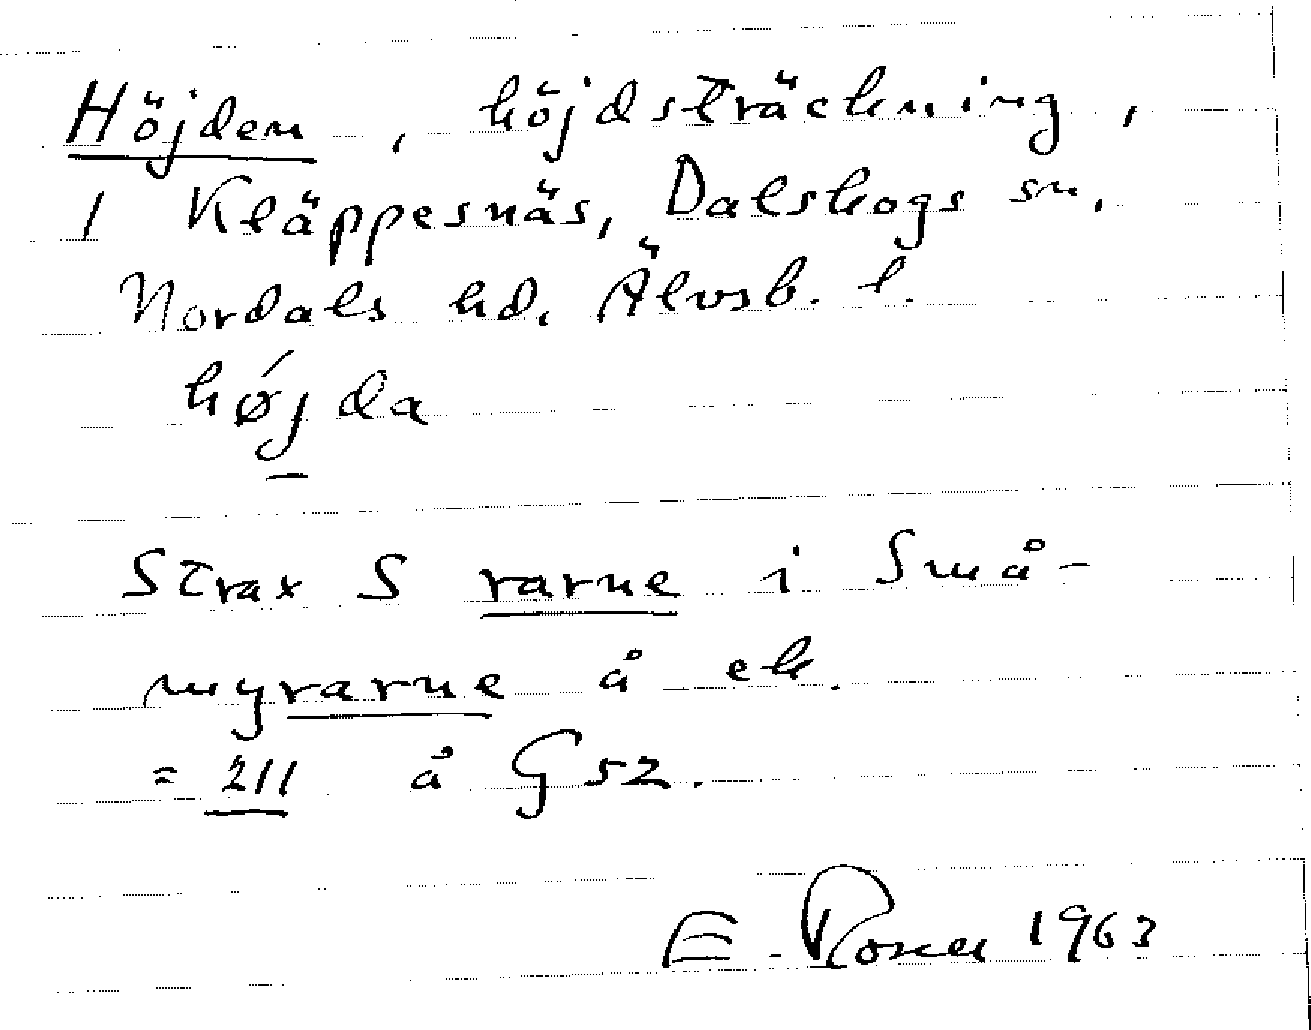 Höjden, höjdsträckning,
1 Kläppesnäs, Dalskogs sn,
Nordals hd. Älvsb. l.
hǿjda
Strax S rarne i Små-
myrarne å ek.
= 211 å G 52.
E. Rosell 1963